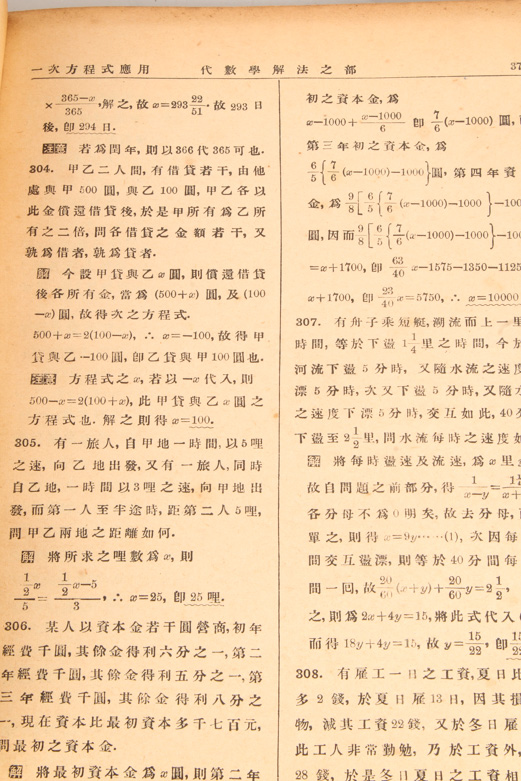 一次方程式應用 代數學解法之部 37
× 365−x/365, 解之, 故 x=293 22/51. 故 293 日
後, 卽 294 日.
注意 若爲閏年, 則以 366 代 365 可也.
304. 甲乙二人間, 有借貸若干, 由他
處與甲 500 圓, 與乙 100 圓, 甲乙各以
此金償還借貸後, 於是甲所有爲乙所
有之二倍, 問各借貸之金額若干, 又
孰爲借者, 孰爲貸者.
解 今設甲貸與乙 x 圓, 則償還借貸
後各所有金, 當爲 (500+x) 圓, 及 (100
−x) 圓, 故得次之方程式.
500+x=2(100−x), ∴ x=−100, 故得甲
貸與乙 −100 圓, 卽乙貸與甲 100 圓也.
注意 方程式之 x, 若以 −x 代入, 則
500−x=2(100+x), 此甲貸與乙 x 圓之
方程式也. 解之則得 x=100.
305. 有一旅人, 自甲地一時間, 以 5 哩
之速, 向乙地出發, 又有一旅人, 同時
自乙地, 一時間以 3 哩之速, 向甲地出
發, 而第一人至半途時, 距第二人 5 哩,
問甲乙兩地之距離如何.
解 將所求之哩數爲 x, 則
1/2 x/5 = (1/2 x−5)/3, ∴ x=25, 卽 25 哩.
306. 某人以資本金若干圓營商, 初年
經費千圓, 其餘金得利六分之一, 第二
年經費千圓, 其餘金得利五分之一, 第
三年經費千圓, 其餘金得利八分之
一, 現在資本比最初資本多千七百元,
問最初之資本金.
解 將最初資本金爲 x 圓, 則第二年
初之資本金, 爲
x−1000+ x−1000/6 卽 7/6 (x−1000) 圓,
第三年初之資本金, 爲
6/5{7/6(x−1000)−1000}圓, 第四年資
金, 爲 9/8[6/5{7/6(x−1000)−1000}−100
圓, 因而 9/8[6/5{7/6(x−1000)−1000}−100
=x+1700, 卽 63/40 x−1575−1350−1125
x+1700, 卽 23/40 x=5750, ∴ x=10000
307. 有舟子乘短艇, 溯流而上一里
時間, 等於下盪 1 1/4 里之時間, 今於
河流下盪 5 分時, 又隨水流之速度
漂 5 分時, 次又下盪 5 分時, 又隨水
之速度下漂 5 分時, 交互如此, 40 分
下盪至 2 1/2 里, 問水流每時之速度如
解 將每時盪速及流速, 爲 x 里
故自問題之前部分, 得 1/x−y = 1 1/4
各分母不爲 0 明矣, 故去分母, 而
單之, 則得 x=9y……(1), 次因每
間交互盪漂, 則等於 40 分間每
間一囘, 故 20/60 (x+y)+ 20/60 y=2 1/2,
之, 則爲 2x+4y=15, 將此式代入 (
而得 18y+4y=15, 故 y= 15/22, 卽 15
308. 有雇工一日之工資, 夏日比
多 2 錢, 於夏日雇 13 日, 因其損
物, 減其工資 22 錢, 又於冬日雇
此工人非常勤勉, 乃於工資外,
28 錢, 於是冬日夏日之工資和